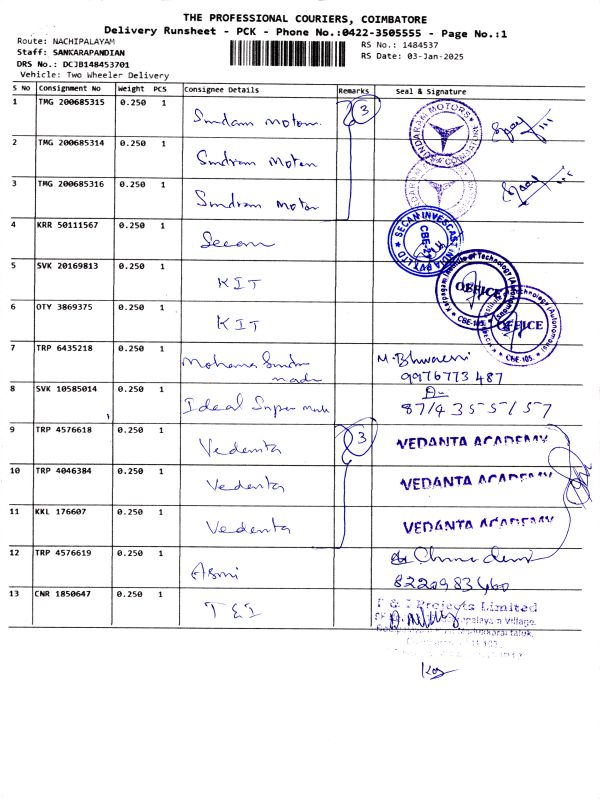 THE PROFESSIONAL COURIERS, COIMBATORE
Delivery Runsheet - PCK - Phone No.:0422-3505555 - Page No.:1
Route: NACHIPALAYAM
RS No.: 1484537
Staff: SANKARAPANDIAN
RS Date: 03-Jan-2025
DRS No.: DCJB148453701
Vehicle: Two Wheeler Delivery
S No Consignment No Weight PCS Consignee Details Remarks Seal & Signature
1 TMG 200685315 0.250 1 Sundram Motors 3 SUNDARAM MOTORS
2 TMG 200685314 0.250 1 Sundram Motors
3 TMG 200685316 0.250 1 Sundram Motors
4 KRR 50111567 0.250 1 Secan SECAN INVESCAST INDIA PVT LTD CBE
5 SVK 20169813 0.250 1 KIT Karpagam Institute of Technology (Autonomous) OFFICE CBE-105.
6 OTY 3869375 0.250 1 KIT Technology (Autonomous) OFFICE CBE-105.
7 TRP 6435218 0.250 1 Mohana Sundra
9976773487
8 SVK 10585014 0.250 1 Ideal Super
9 TRP 4576618 0.250 1 Vedanta 3 VEDANTA ACADEMY
10 TRP 4046384 0.250 1 Vedanta VEDANTA ACADEMY
11 KKL 176607 0.250 1 Vedanta VEDANTA ACADEMY
12 TRP 4576619 0.250 1 Asmi
8220983460
13 CNR 1850647 0.250 1 T&I T & I Projects Limited
Village,